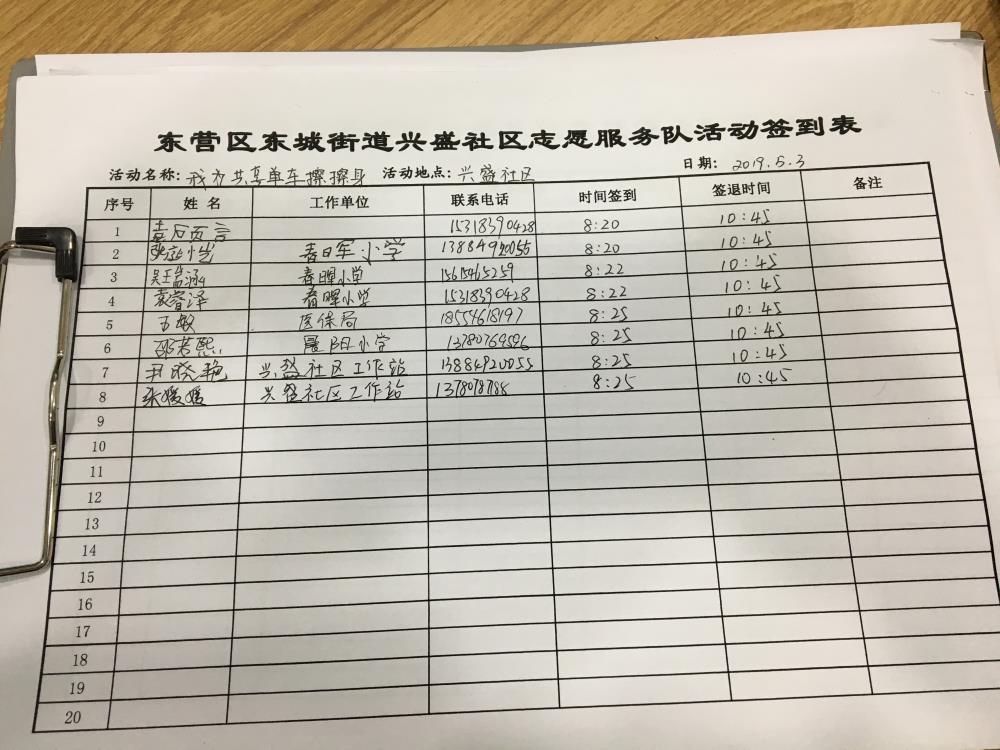 东营区东城街道兴盛社区志愿服务队活动签到表
活动名称：我为共享单车擦擦身 活动地点：兴盛社区 日期：2019.5.3
序号 姓名 工作单位 联系电话 时间签到 签退时间 备注
1 15318390428 8:20 10:45
2 春晖小学 13884920055 8:20 10:45
3 吴瑞涵 春晖小学 15615465259 8:22 10:45
4 袁睿泽 春晖小学 15318390428 8:22 10:45
5 王敏 医保局 18554618197 8:25 10:45
6 邵若熙 晨阳小学 13780769596 8:25 10:45
7 尹晓艳 兴盛社区工作站 13884920055 8:25 10:45
8 张媛媛 兴盛社区工作站 8:25 10:45
9
10
11
12
13
14
15
16
17
18
19
20